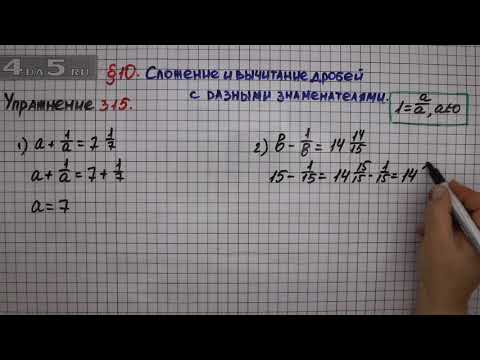 4DA5.RU
§10. Сложение и вычитание дробей
с разными знаменателями.
Упражнение 315.
1 = a/a, a≠0
1) a + 1/a = 7 1/7
a + 1/a = 7 + 1/7
a = 7
2) b - 1/b = 14 14/15
15 - 1/15 = 14 15/15 - 1/15 = 14